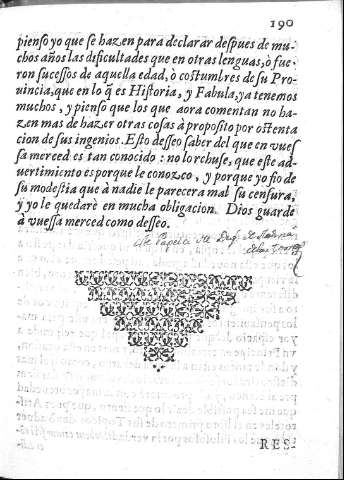 190
pienso yo que se hazen para declarar despues de mu-
chos años las dificultades que en otras lenguas, ò fue-
ron sucessos de aquella edad, ò costumbres de su Pro-
uincia, que en lo q̃ es Historia, y Fabula, ya tenemos
muchos, y pienso que los que aora comentan no ha-
zen mas de hazer otras cosas à proposito por ostenta
cion de sus ingenios. Esto desseo saber del que en vues
sa merced es tan conocido: no lo rehuse, que este ad-
uertimiento es porque le conozco, y porque yo fio de
su modestia que à nadie le parecera mal su censura,
y yo le quedarè en mucha obligacion. Dios guarde
à vuessa merced como desseo.
RES-